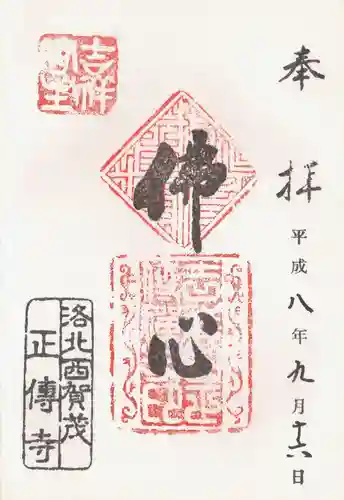 奉拝
平成八年九月十六日
佛心
吉祥
洛北西賀茂
正傳寺